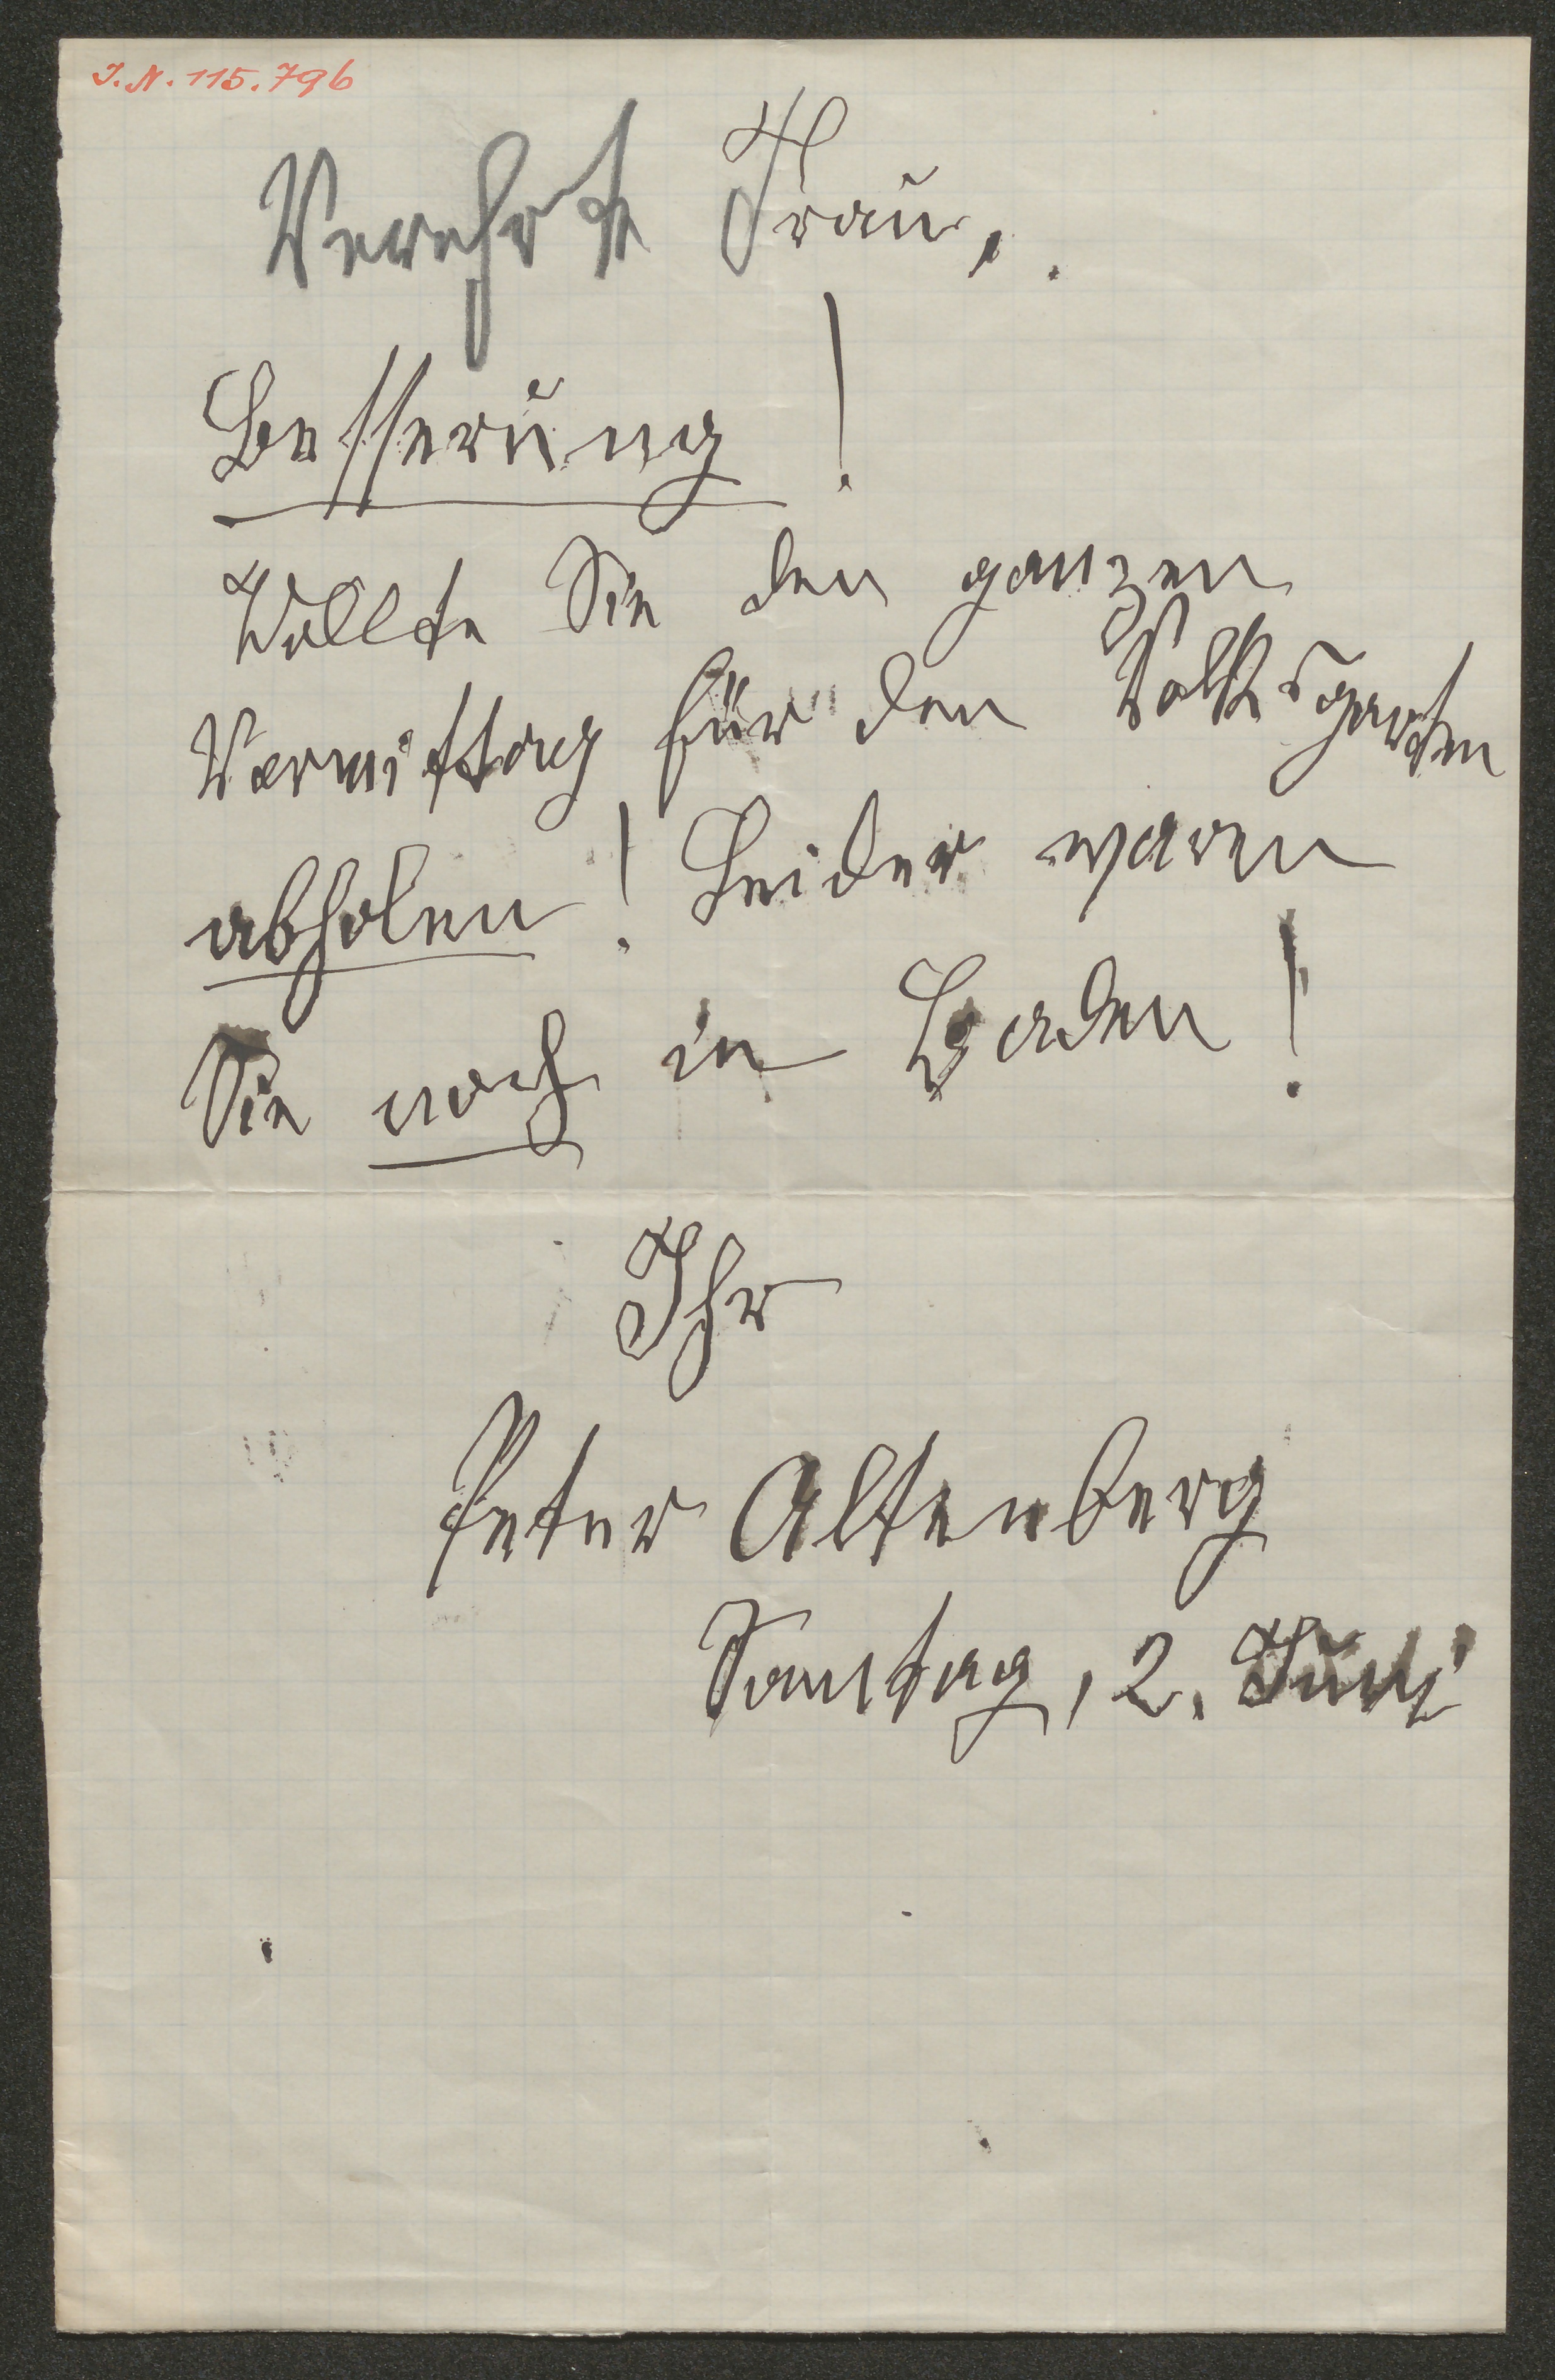 I. N. 115.796
Verehrte Frau,
Besserung!
Wollte Sie den ganzen
Vormittag für den Volksgarten
abholen! Leider waren
Sie noch in Baden!
Ihr
Peter Altenberg
Samstag, 2. Juni